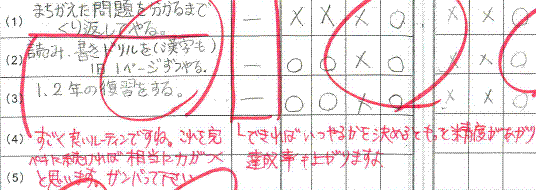 (1) まちがえた問題を分かるまで
くり返してやる。 — × × × ○ × × ○
(2) 読み、書きドリルを(漢字も)
1日1ページずつやる。 — ○ ○ × ○ × × ○
(3) 1、2年の復習をする。 — ○ ○ × ○ × × ○
(4) すごく良いルーティンですね。これを完
ぺきに続ければ相当力がつく
(5) と思います。ガンバって下さい
できればいつやるかを決めるともっと精度があがり
達成率も上がりますよ